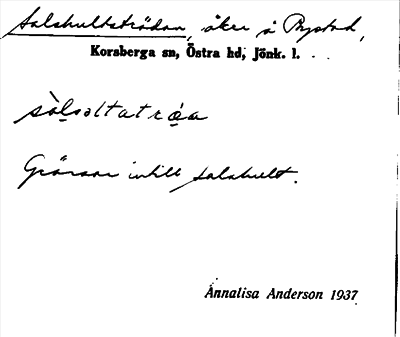 Salshultströdan, åker å Rystad,
Korsberga sn, Östra hd, Jönk. l.
sàlsəltatrǫ́a
Gränsar intill Salshult.
Annalisa Anderson 1937